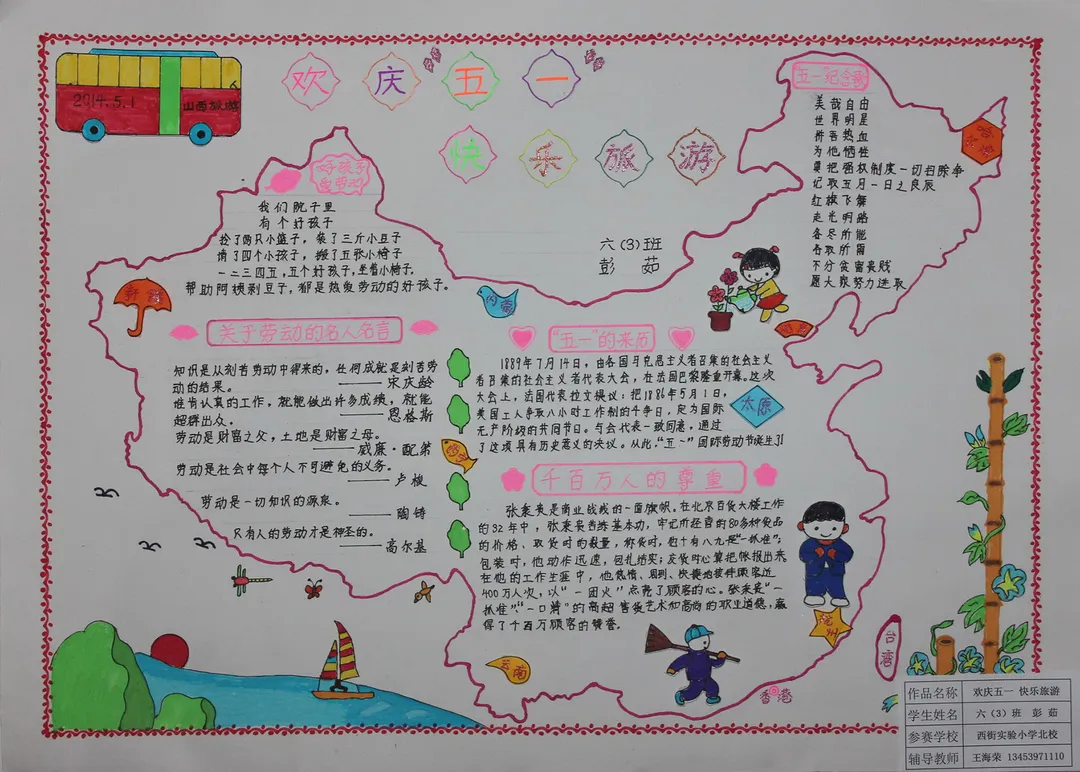 2014.5.1
山西旅游
欢庆五一
快乐旅游
六(3)班
彭茹
好孩子
爱劳动
我们院子里
有个好孩子
捡了两只小篮子，装了三斤小豆子
请了四个小孩子，搬了五张小椅子
一二三四五，五个好孩子，坐着小椅子。
帮助阿姨剥豆子，都是热爱劳动的好孩子。
新疆
内蒙
五一纪念歌
美哉自由
世界明星
拚吾热血
为他牺牲
要把强权制度一切扫除净
记取五月一日之良辰
红旗飞舞
走光明路
各尽所能
各取所需
不分贫富贵贱
愿大家努力进取
关于劳动的名人名言
知识是从刻苦劳动中得来的，任何成就是刻苦劳
动的结果。
——宋庆龄
谁肯认真的工作，就能做出许多成绩，就能
超群出众。
——恩格斯
劳动是财富之父，土地是财富之母。
——威廉·配第
劳动是社会中每个人不可避免的义务。
——卢梭
劳动是一切知识的源泉。
——陶铸
只有人的劳动才是神圣的。
——高尔基
"五一"的来历
1889年7月14日，由各国马克思主义者召集的社会主义
者召集的社会主义者代表大会，在法国巴黎隆重开幕。这次
大会上，法国代表拉文提议：把1886年5月1日，
美国工人争取八小时工作制的斗争日，定为国际
无产阶级的共同节日。与会代表一致同意，通过
了这项具有历史意义的决议。从此，"五一"国际劳动节诞生了！
太原
千百万人的尊重
张秉贵是商业战线的一面旗帜，在北京百货大楼工作
的32年中，张秉贵苦练基本功，牢记所经营的80多种食品
的价格、取货时的数量，称货时，他十有八九是"一抓准"；
包装时，他动作迅速，包扎结实；交货时心算把帐报出来
在他的工作生涯中，他热情、周到、快捷地接待顾客近
400万人次，以"一团火"点亮了顾客的心。张秉贵"一
抓准""一口清"的高超售货艺术和高尚的职业道德，赢
得了千百万顾客的赞誉。
杭州
云南
香港
台湾
作品名称 欢庆五一 快乐旅游
学生姓名 六（3）班 彭 茹
参赛学校 西街实验小学北校
辅导教师 王海荣 13453971110